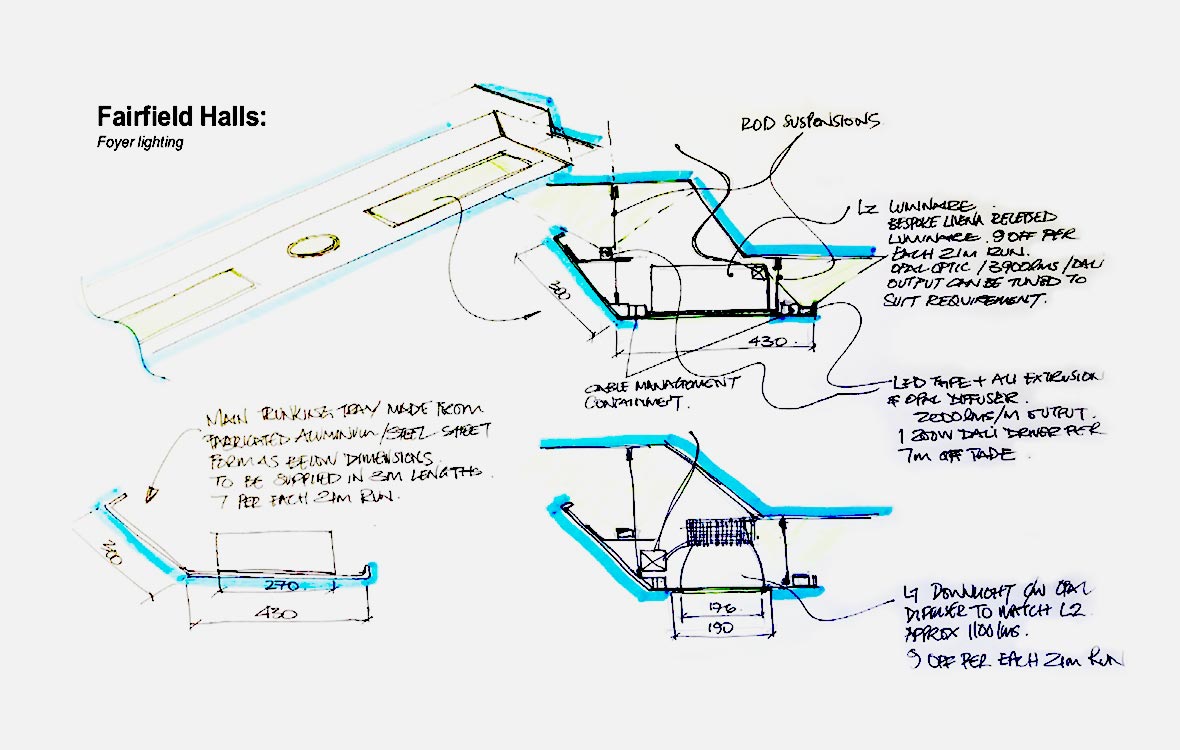 Fairfield Halls:
Foyer lighting
ROD SUSPENSIONS
L2 LUMINAIRE.
BESPOKE RECESSED
LUMINAIRE. 9 OFF PER
EACH 21M RUN.
OPAL OPTIC / 3900LMS / DALI
OUTPUT CAN BE TUNED TO
SUIT REQUIREMENT.
300
430
CABLE MANAGEMENT
CONTAINMENT.
LED TAPE + ALI EXTRUSION
& OPAL DIFFUSER.
2000LMS/M OUTPUT.
1 200W DALI DRIVER PER
7m OFF TAPE
MAIN TRUNKING TRAY MADE FROM
FABRICATED ALUMINIUM/STEEL SHEET
FORM AS BELOW DIMENSIONS.
TO BE SUPPLIED IN 3M LENGTHS.
7 PER EACH 21M RUN.
300
270
430
196
190
L1 DOWNLIGHT C/W OPAL
DIFFUSER TO MATCH L2
APPROX 1100LMS.
9 OFF PER EACH 21m RUN